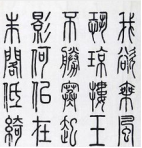 我欲乘風
恐瓊樓玉
不勝寒起
影何似在
朱閣低綺